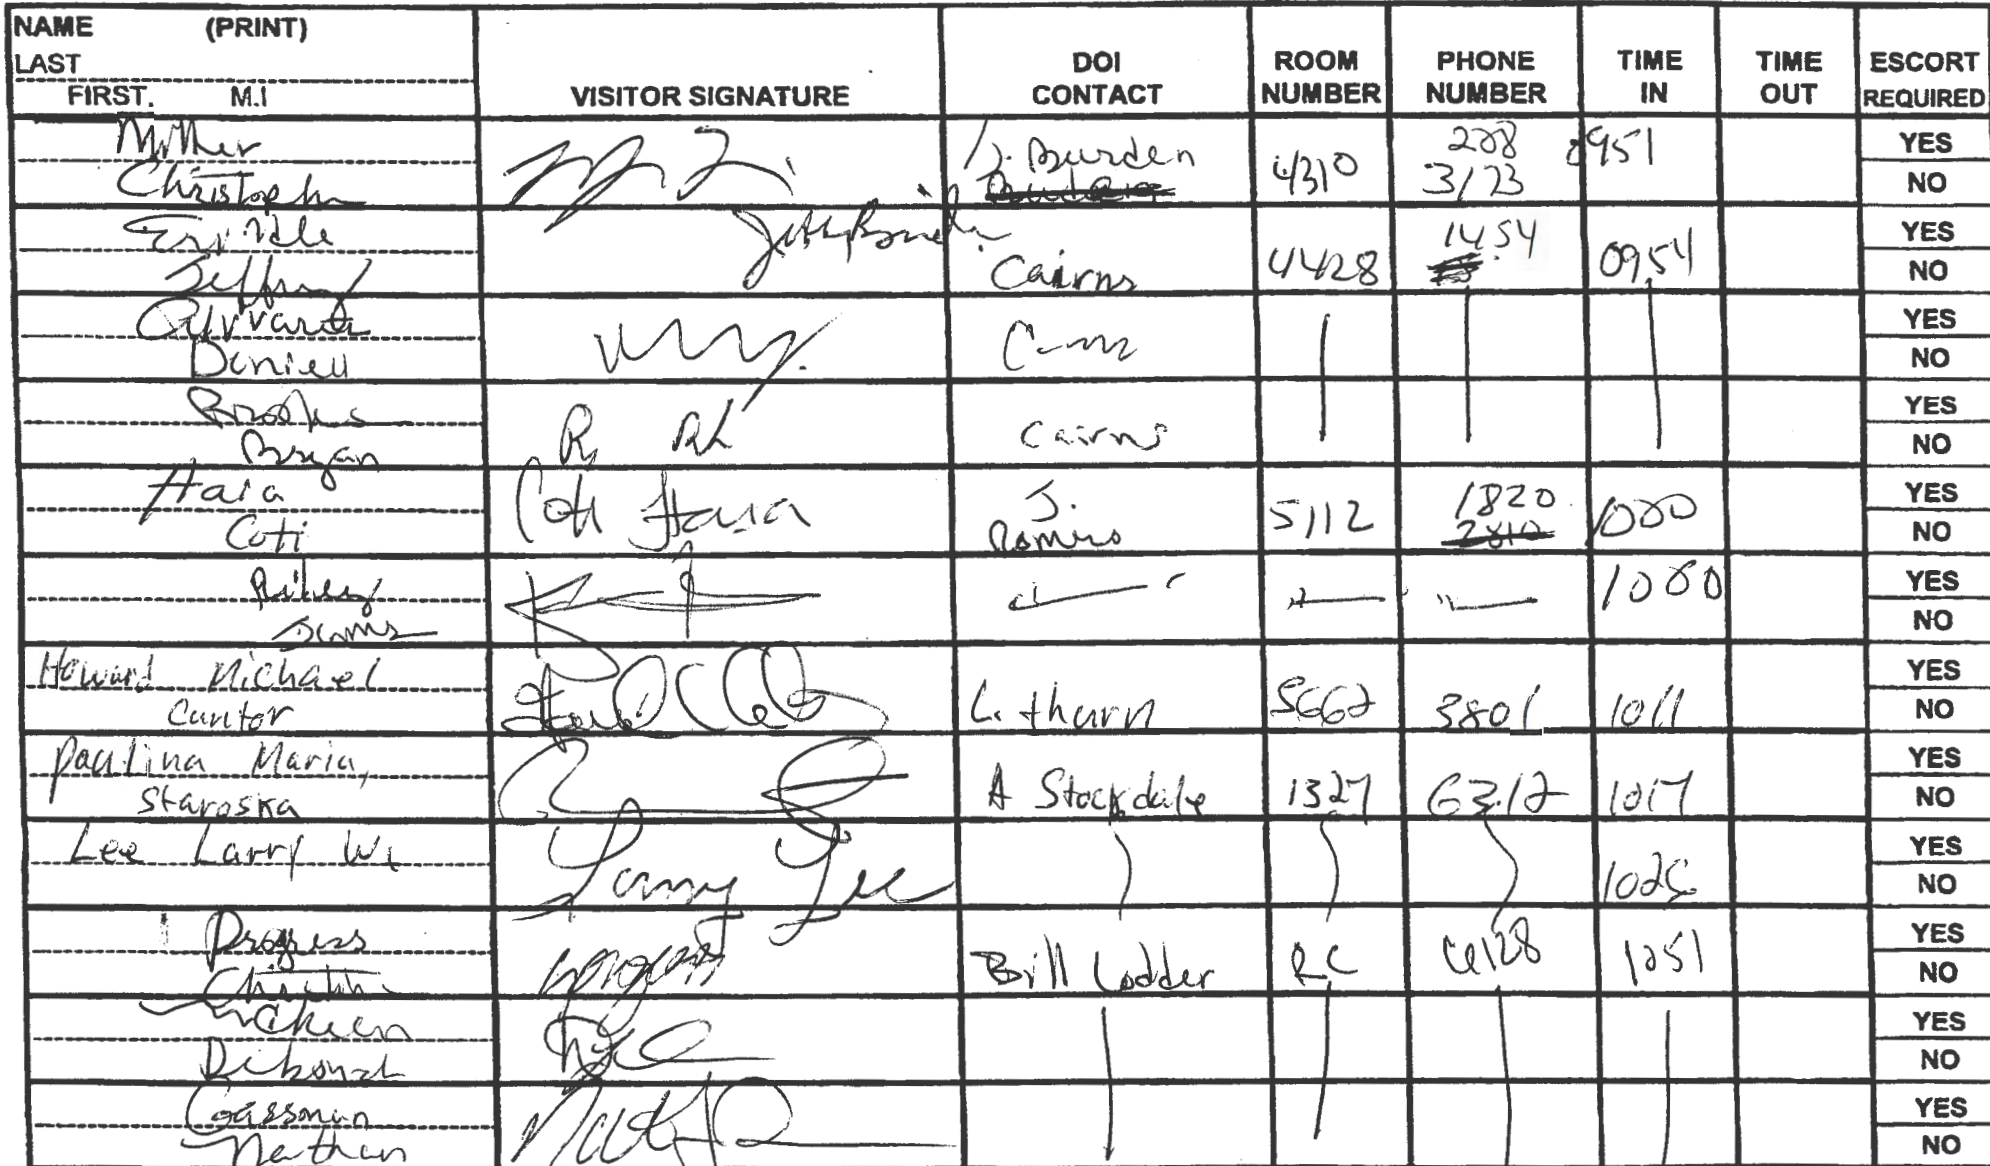 NAME (PRINT)
LAST
FIRST. M.I
VISITOR SIGNATURE
DOI CONTACT
ROOM NUMBER
PHONE NUMBER
TIME IN
TIME OUT
ESCORT REQUIRED
Christoph
Burden
4310
208
3123
0951
YES
NO
Jeffrey
Cairns
4428
1454
0954
YES
NO
Daniell
YES
NO
Brooks
Bryan
Cairns
YES
NO
Haia
Coti
Coti Haia
J. Romero
5112
1820
1000
YES
NO
Riley
James
1000
YES
NO
Howard Michael
Cantor
L. thurn
5662
3801
1011
YES
NO
Paulina Maria,
Staroska
A Stockdale
1327
6312
1017
YES
NO
Lee Larry W.
Larry Lee
YES
NO
Progress
Bill Lodder
RC
6128
1051
YES
NO
Deborah
YES
NO
Gassman
Nathan
YES
NO